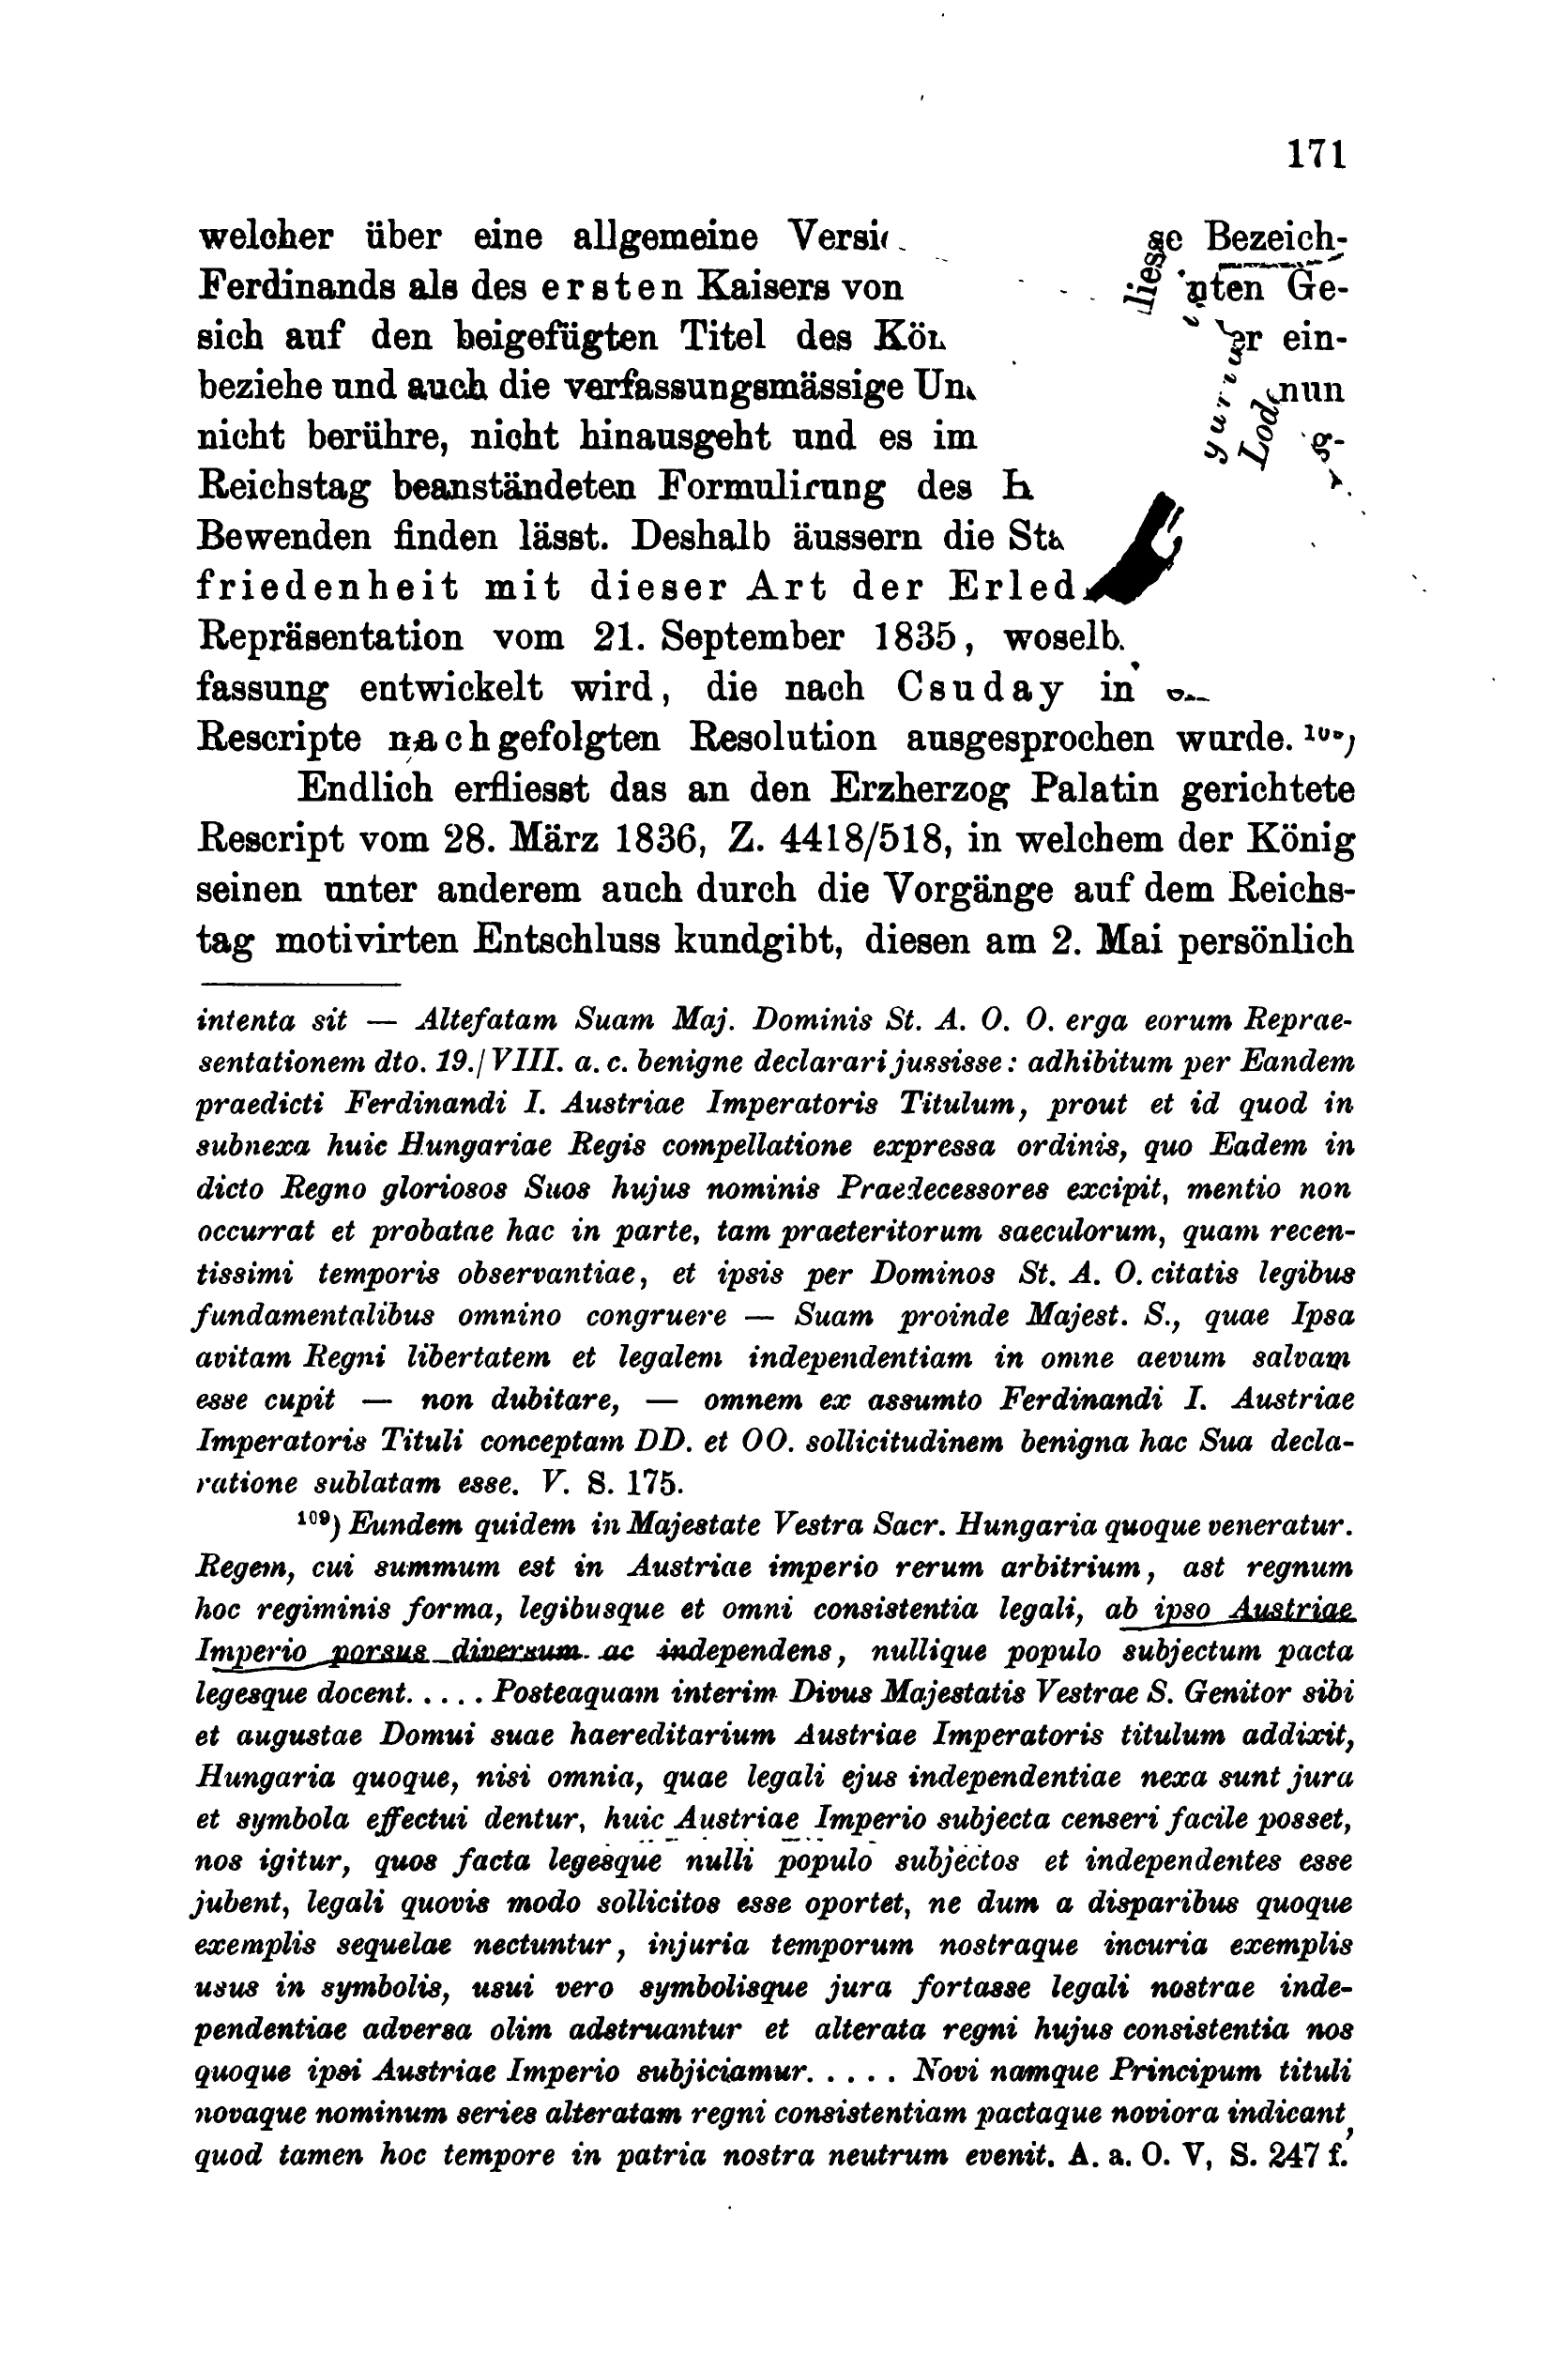 171
welcher über eine allgemeine Bezeich-
Ferdinands als des ersten Kaisers von Ge-
sich auf den beigefügten Titel des ein-
beziehe und auch die verfassungsmässige nun
nicht berühre, nicht hinausgeht und es im
Reichstag beanständeten Formulirung des
Bewenden finden lässt. Deshalb äussern die
friedenheit mit dieser Art der
Repräsentation vom 21. September 1835, 
fassung entwickelt wird, die nach Csuday in
Rescripte nachgefolgten Resolution ausgesprochen wurde.
Endlich erfliesst das an den Erzherzog Palatin gerichtete
Rescript vom 28. März 1836, Z. 4418/518, in welchem der König
seinen unter anderem auch durch die Vorgänge auf dem Reichs-
tag motivirten Entschluss kundgibt, diesen am 2. Mai persönlich
intenta sit — Altefatam Suam Maj. Dominis St. A. O. O. erga eorum Reprae-
sentationem dto. 19./VIII. a. c. benigne declarari jussisse: adhibitum per Eandem
praedicti Ferdinandi I. Austriae Imperatoris Titulum, prout et id quod in
subnexa huic Hungariae Regis compellatione expressa ordinis, quo Eadem in
dicto Regno gloriosos Suos hujus nominis Praedecessores excipit, mentio non
occurrat et probatae hac in parte, tam praeteritorum saeculorum, quam recen-
tissimi temporis observantiae, et ipsis per Dominos St. A. O. citatis legibus
fundamentalibus omnino congruere — Suam proinde Majest. S., quae Ipsa
avitam Regni libertatem et legalem independentiam in omne aevum salvam
esse cupit — non dubitare, — omnem ex assumto Ferdinandi I. Austriae
Imperatoris Tituli conceptam DD. et OO. sollicitudinem benigna hac Sua decla-
ratione sublatam esse. V. S. 175.
109) Eundem quidem in Majestate Vestra Sacr. Hungaria quoque veneratur.
Regem, cui summum est in Austriae imperio rerum arbitrium, ast regnum
hoc regiminis forma, legibusque et omni consistentia legali, ab ipso Austriae
Imperio porsus diversum ac independens, nullique populo subjectum pacta
legesque docent..... Posteaquam interim Divus Majestatis Vestrae S. Genitor sibi
et augustae Domui suae haereditarium Austriae Imperatoris titulum addixit,
Hungaria quoque, nisi omnia, quae legali ejus independentiae nexa sunt jura
et symbola effectui dentur, huic Austriae Imperio subjecta censeri facile posset,
nos igitur, quos facta legesque nulli populo subjectos et independentes esse
jubent, legali quovis modo sollicitos esse oportet, ne dum a disparibus quoque
exemplis sequelae nectuntur, injuria temporum nostraque incuria exemplis
usus in symbolis, usui vero symbolisque jura fortasse legali nostrae inde-
pendentiae adversa olim adstruantur et alterata regni hujus consistentia nos
quoque ipsi Austriae Imperio subjiciamur..... Novi namque Principum tituli
novaque nominum series alteratam regni consistentiam pactaque noviora indicant,
quod tamen hoc tempore in patria nostra neutrum evenit. A. a. O. V, S. 247 f.